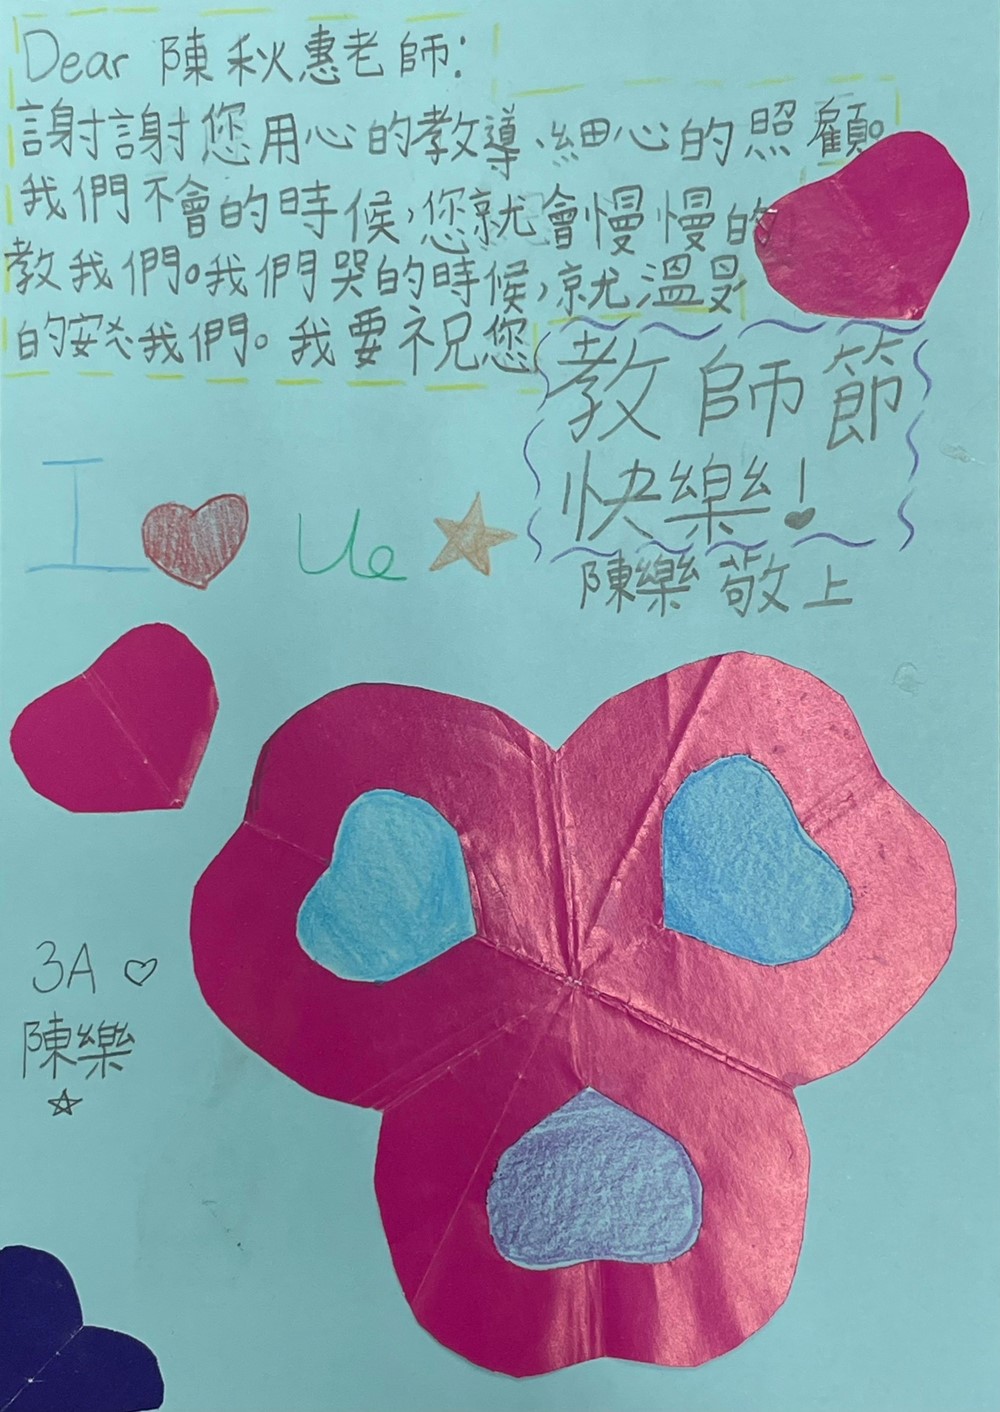 Dear 陳秋惠老師:
謝謝您用心的教導、細心的照顧。
我們不會的時候,您就會慢慢的
教我們。我們哭的時候,就溫
的安我們。我要祝您
教師節
快樂!
陳樂敬上
I ue
3A
陳樂